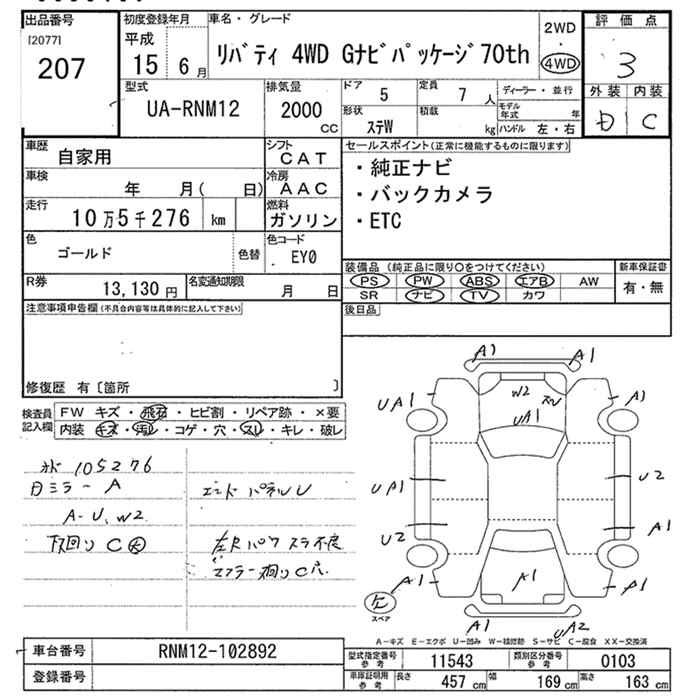 出品番号
[2077]
207
初度登録年月
平成
15 6 月
車名・グレード
リバティ 4WD Gナビパッケージ70th
2WD
・
4WD
評価点
3
外装 内装
D C
型式
UA-RNM12
排気量
2000
CC
ドア 5
定員 7 人
ディーラー・並行
形状 ステW
積載 kg
モデル年式 年
ハンドル 左・右
車歴 自家用
シフト CAT
車検 年 月( 日)
冷房 AAC
走行 10万5千276 km
燃料 ガソリン
色 ゴールド
色替
色コード EY0
R券 13,130 円
名変通知期限 月 日
セールスポイント(正常に機能するものに限ります)
・純正ナビ
・バックカメラ
・ETC
装備品 (純正品に限り○をつけてください)
PS PW ABS エアB AW
SR ナビ TV カワ
新車保証書
有・無
後日品
注意事項申告欄(不具合内容等は具体的に記入して下さい)
修復歴 有〔箇所 〕
検査員
記入欄
FW キズ・飛石・ヒビ割・リペア跡・×要
内装 キズ・汚レ・コゲ・穴・スレ・キレ・破レ
105276
ミラー A
A-U、W2
下回り C 大
エンドパネルU
左R パワスラ不良
マフラー廻りC穴
A1
A1
W2
UA1
UA1
A1
UA1
U2
U2
A1
A1
A1
A1
A1
UA2
スペア
A-キズ E-エクボ U-凹み W-補修跡 S-サビ C-腐食 XX-交換済
車台番号 RNM12-102892
登録番号
型式指定番号
参考
11543
類別区分番号
参考
0103
車庫証明用
参考
長さ 457 cm 幅 169 cm 高さ 163 cm